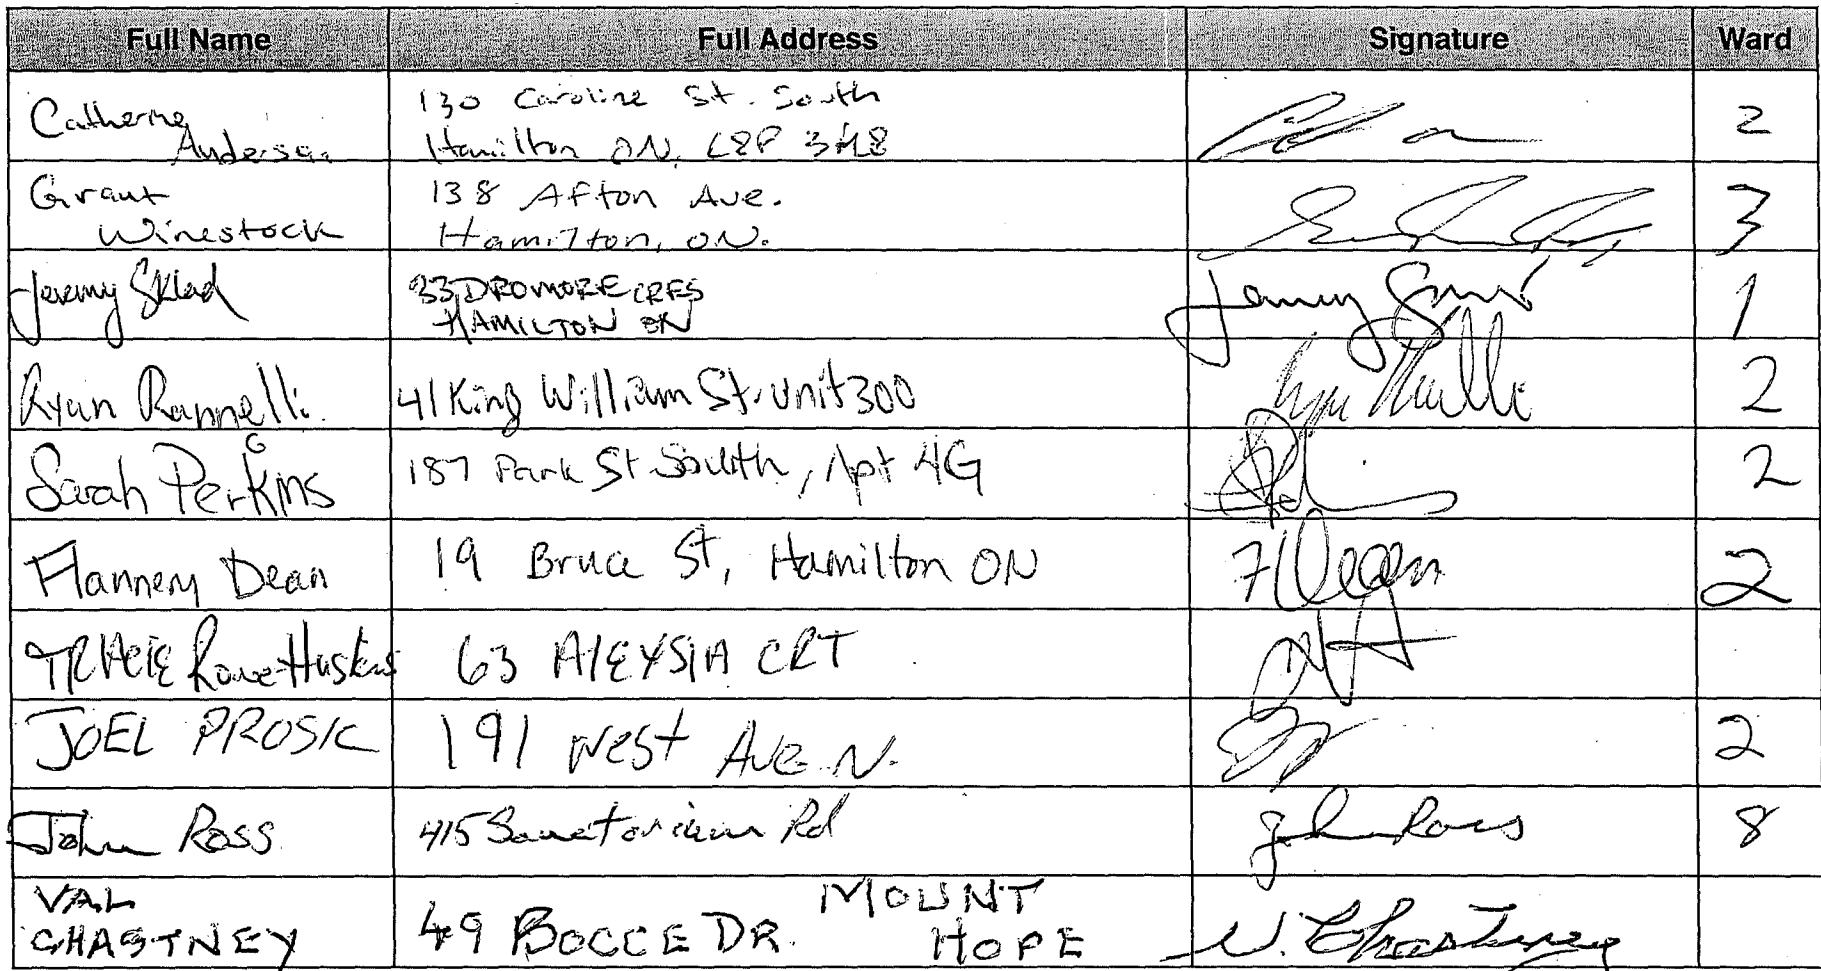 Full Name Full Address Signature Ward
Catherine
Anderson
130 Caroline St. South
Hamilton ON, L8P 3H8
2
Grant
Winestock
138 Afton Ave.
Hamilton, ON.
3
Jeremy Sklad
33 DROMORE CRES
HAMILTON ON
1
Ryan Rannelli
41 King William St. Unit 300
2
Sarah Perkins
187 Park St South, Apt 4G
2
Flannery Dean
19 Bruce St, Hamilton ON
2
TRACIE Rowe-Huskins
63 AlEYSIA CRT
JOEL PROSIC
191 West Ave. N.
2
John Ross
415 Sanatorium Rd
John Ross
8
VAL
CHASTNEY
49 BOCCE DR. MOUNT
HOPE
V. Chastney